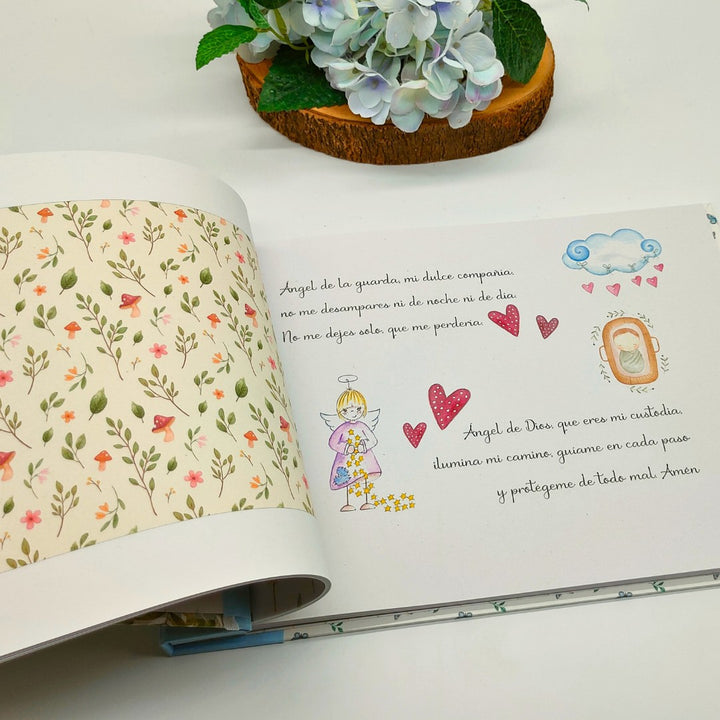 Ángel de la guarda, mi dulce compañia,
no me desampares ni de noche ni de dia.
No me dejes solo, que me perderia.
Ángel de Dios, que eres mi custodia,
ilumina mi camino, guiame en cada paso
y protégeme de todo mal. Amén